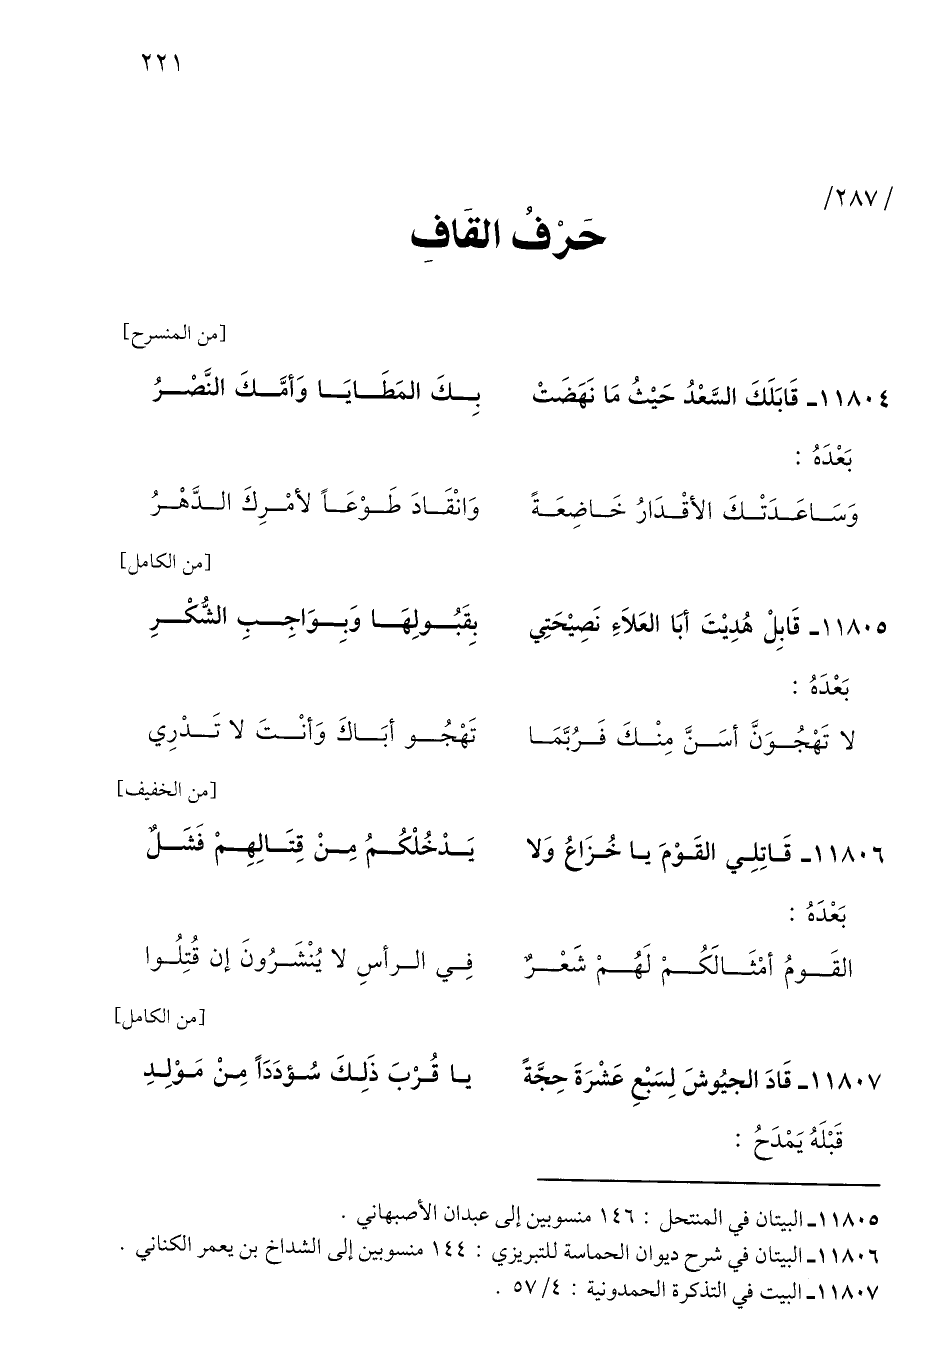 ٢٢١
/٢٨٧/
حَرْفُ القَافِ
[من المنسرح]
١١٨٠٤ـ قَابَلَكَ السَّعْدُ حَيْثُ مَا نَهَضَتْ بِكَ المَطَايَا وَأمَّكَ النَّصْرُ
بَعْدَهُ :
وَسَاعَدَتْكَ الأقْدَارُ خَاضِعَةً وَانْقَادَ طَوْعَاً لأمْرِكَ الدَّهْرُ
[من الكامل]
١١٨٠٥ـ قَابِلْ هُدِيْتَ أبَا العَلاَءِ نَصِيْحَتِي بِقَبُولِهَا وَبِوَاجِبِ الشُّكْرِ
بَعْدَهُ :
لا تَهْجُوَنَّ أسَنَّ مِنْكَ فَرُبَّمَا تَهْجُو أبَاكَ وَأنْتَ لا تَدْرِي
[من الخفيف]
١١٨٠٦ـ قَاتِلِي القَوْمَ يا خُزَاعُ وَلا يَدْخُلْكُمُ مِنْ قِتَالِهِمْ فَشَلٌ
بَعْدَهُ :
القَومُ أمْثَالَكُمْ لَهُمْ شَعْرٌ فِي الرأسِ لا يُنْشَرُونَ إن قُتِلُوا
[من الكامل]
١١٨٠٧ـ قَادَ الجيُوشَ لِسَبْعِ عَشْرَةَ حِجَّةً يا قُرْبَ ذَلِكَ سُؤدَدَاً مِنْ مَوْلِدِ
قَبْلَهُ يَمْدَحُ :
١١٨٠٥ـ البيتان في المنتحل : ١٤٦ منسوبين إلى عبدان الأصبهاني .
١١٨٠٦ـ البيتان في شرح ديوان الحماسة للتبريزي : ١٤٤ منسوبين إلى الشداخ بن يعمر الكناني .
١١٨٠٧ـ البيت في التذكرة الحمدونية : ٤/ ٥٧ .